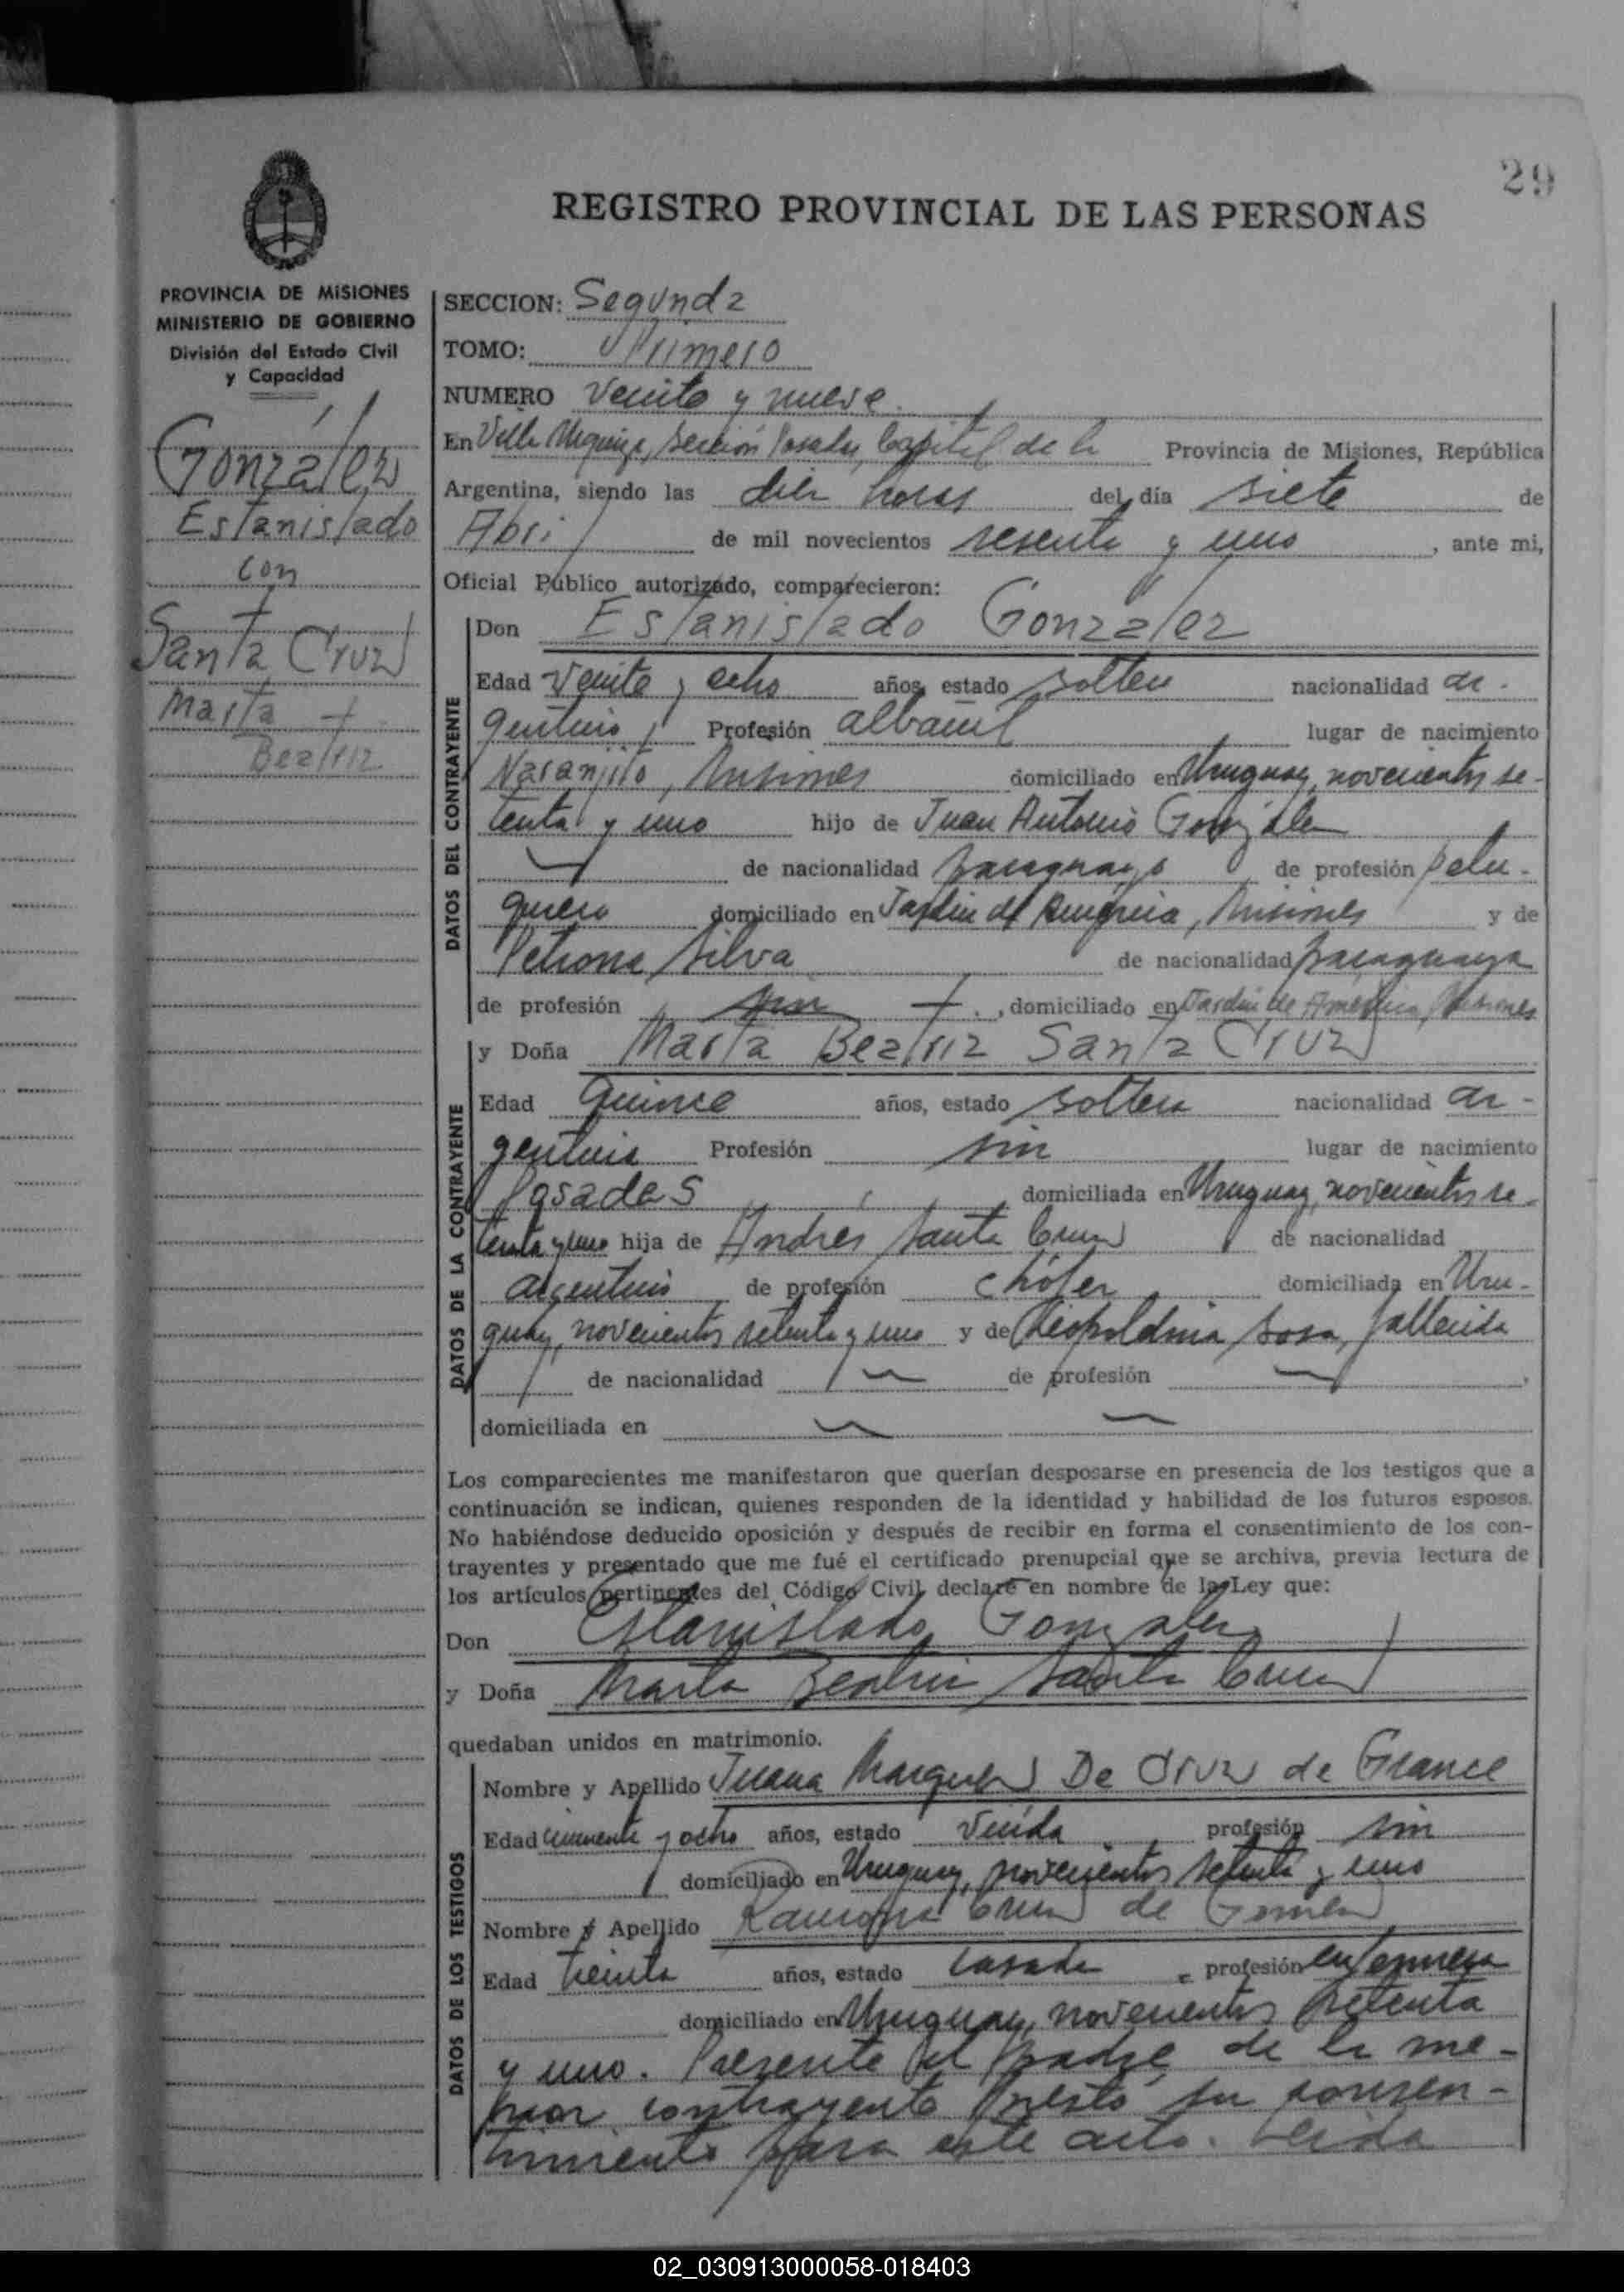 29
REGISTRO PROVINCIAL DE LAS PERSONAS
PROVINCIA DE MISIONES
MINISTERIO DE GOBIERNO
División del Estado Civil
y Capacidad
González
Estanislado
con
Santa Cruz
Marta
Beatriz
SECCION: Segunda
TOMO: Primero
NUMERO Veinte y nueve.
En Villa Urquiza, sección Posadas, Capital de la Provincia de Misiones, República
Argentina, siendo las diez horas del día siete de
Abril de mil novecientos sesenta y uno, ante mi,
Oficial Público autorizado, comparecieron:
DATOS DEL CONTRAYENTE
Don Estanislado González
Edad Veinte y ocho años, estado soltero nacionalidad ar-
gentino, Profesión albañil lugar de nacimiento
Naranjito, Misiones domiciliado en Uruguay, novecientos se-
tenta y uno hijo de Juan Antonio González
de nacionalidad paraguayo de profesión pelu-
quero domiciliado en Jardín de América, Misiones y de
Petrona Silva de nacionalidad paraguaya
de profesión sin , domiciliado en Jardín de América, Misiones
DATOS DE LA CONTRAYENTE
y Doña Marta Beatriz Santa Cruz
Edad Quince años, estado soltera nacionalidad ar-
gentina Profesión sin lugar de nacimiento
Posadas, domiciliada en Uruguay, novecientos se-
tenta y uno hija de Andrés Santa Cruz de nacionalidad
argentino de profesión chófer domiciliada en Uru-
guay, novecientos setenta y uno y de Leopoldina Sosa, fallecida
de nacionalidad de profesión
domiciliada en
Los comparecientes me manifestaron que querían desposarse en presencia de los testigos que a
continuación se indican, quienes responden de la identidad y habilidad de los futuros esposos.
No habiéndose deducido oposición y después de recibir en forma el consentimiento de los con-
trayentes y presentado que me fué el certificado prenupcial que se archiva, previa lectura de
los artículos pertinentes del Código Civil declaré en nombre de la Ley que:
Don Estanislado González
y Doña Marta Beatriz Santa Cruz
quedaban unidos en matrimonio.
DATOS DE LOS TESTIGOS
Nombre y Apellido Juana Marquez De Cruz de Grance
Edad cincuenta y ocho años, estado viuda profesión sin
domiciliado en Uruguay, novecientos setenta y uno
Nombre y Apellido Ramona Cruz de Gomez
Edad treinta años, estado casada profesión enfermera
domiciliado en Uruguay, novecientos setenta
y uno. Presente el padre de la me-
nor contrayente prestó su consen-
timiento para este acto. Leida
02_030913000058-018403